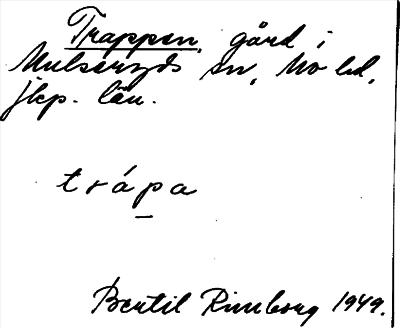 Trappen, gård i
Mulseryds sn, Mo hd,
jkp. län.
trápa
Bertil Rimborg 1949.